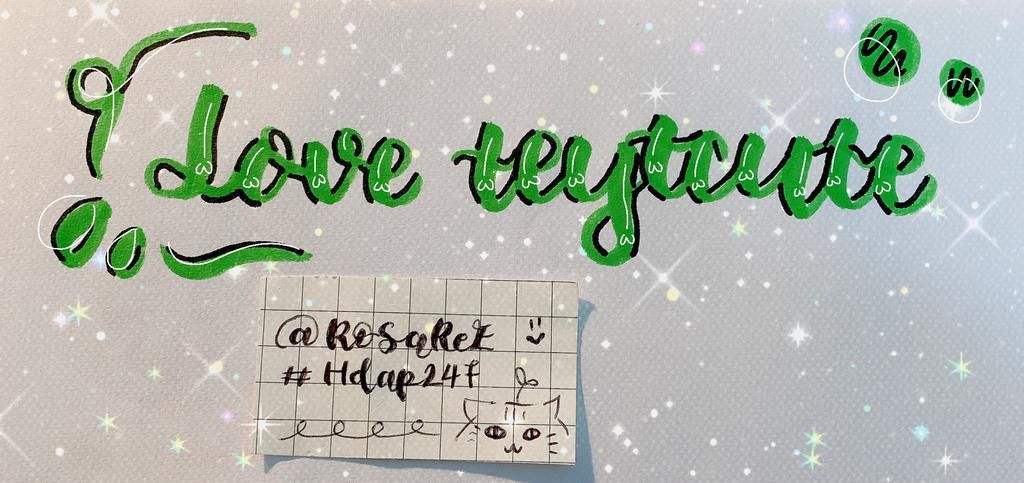 Love teytcute
@RoSaRet
#Hdap24f